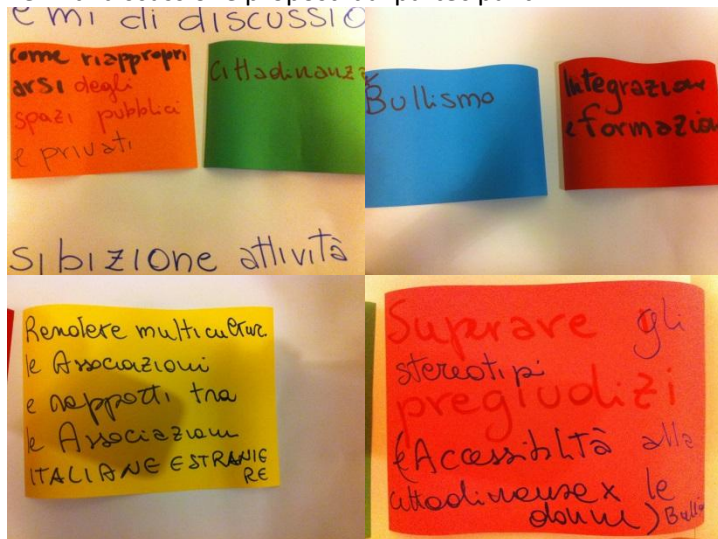 emi di discussio
come riappropri
arsi degli
spazi pubblici
e privati
Cittadinanz
Bullismo
Integrazione
e formazion
sibizione attività
Rendere multicultur.
le Associazioni
e rapporti tra
le Associazioni
ITALIANE ESTRANIE
RE
Suprare gli
stereotipi
pregiudizi
(Accessibilità alla
cittadinanza x le
donne) Bulli